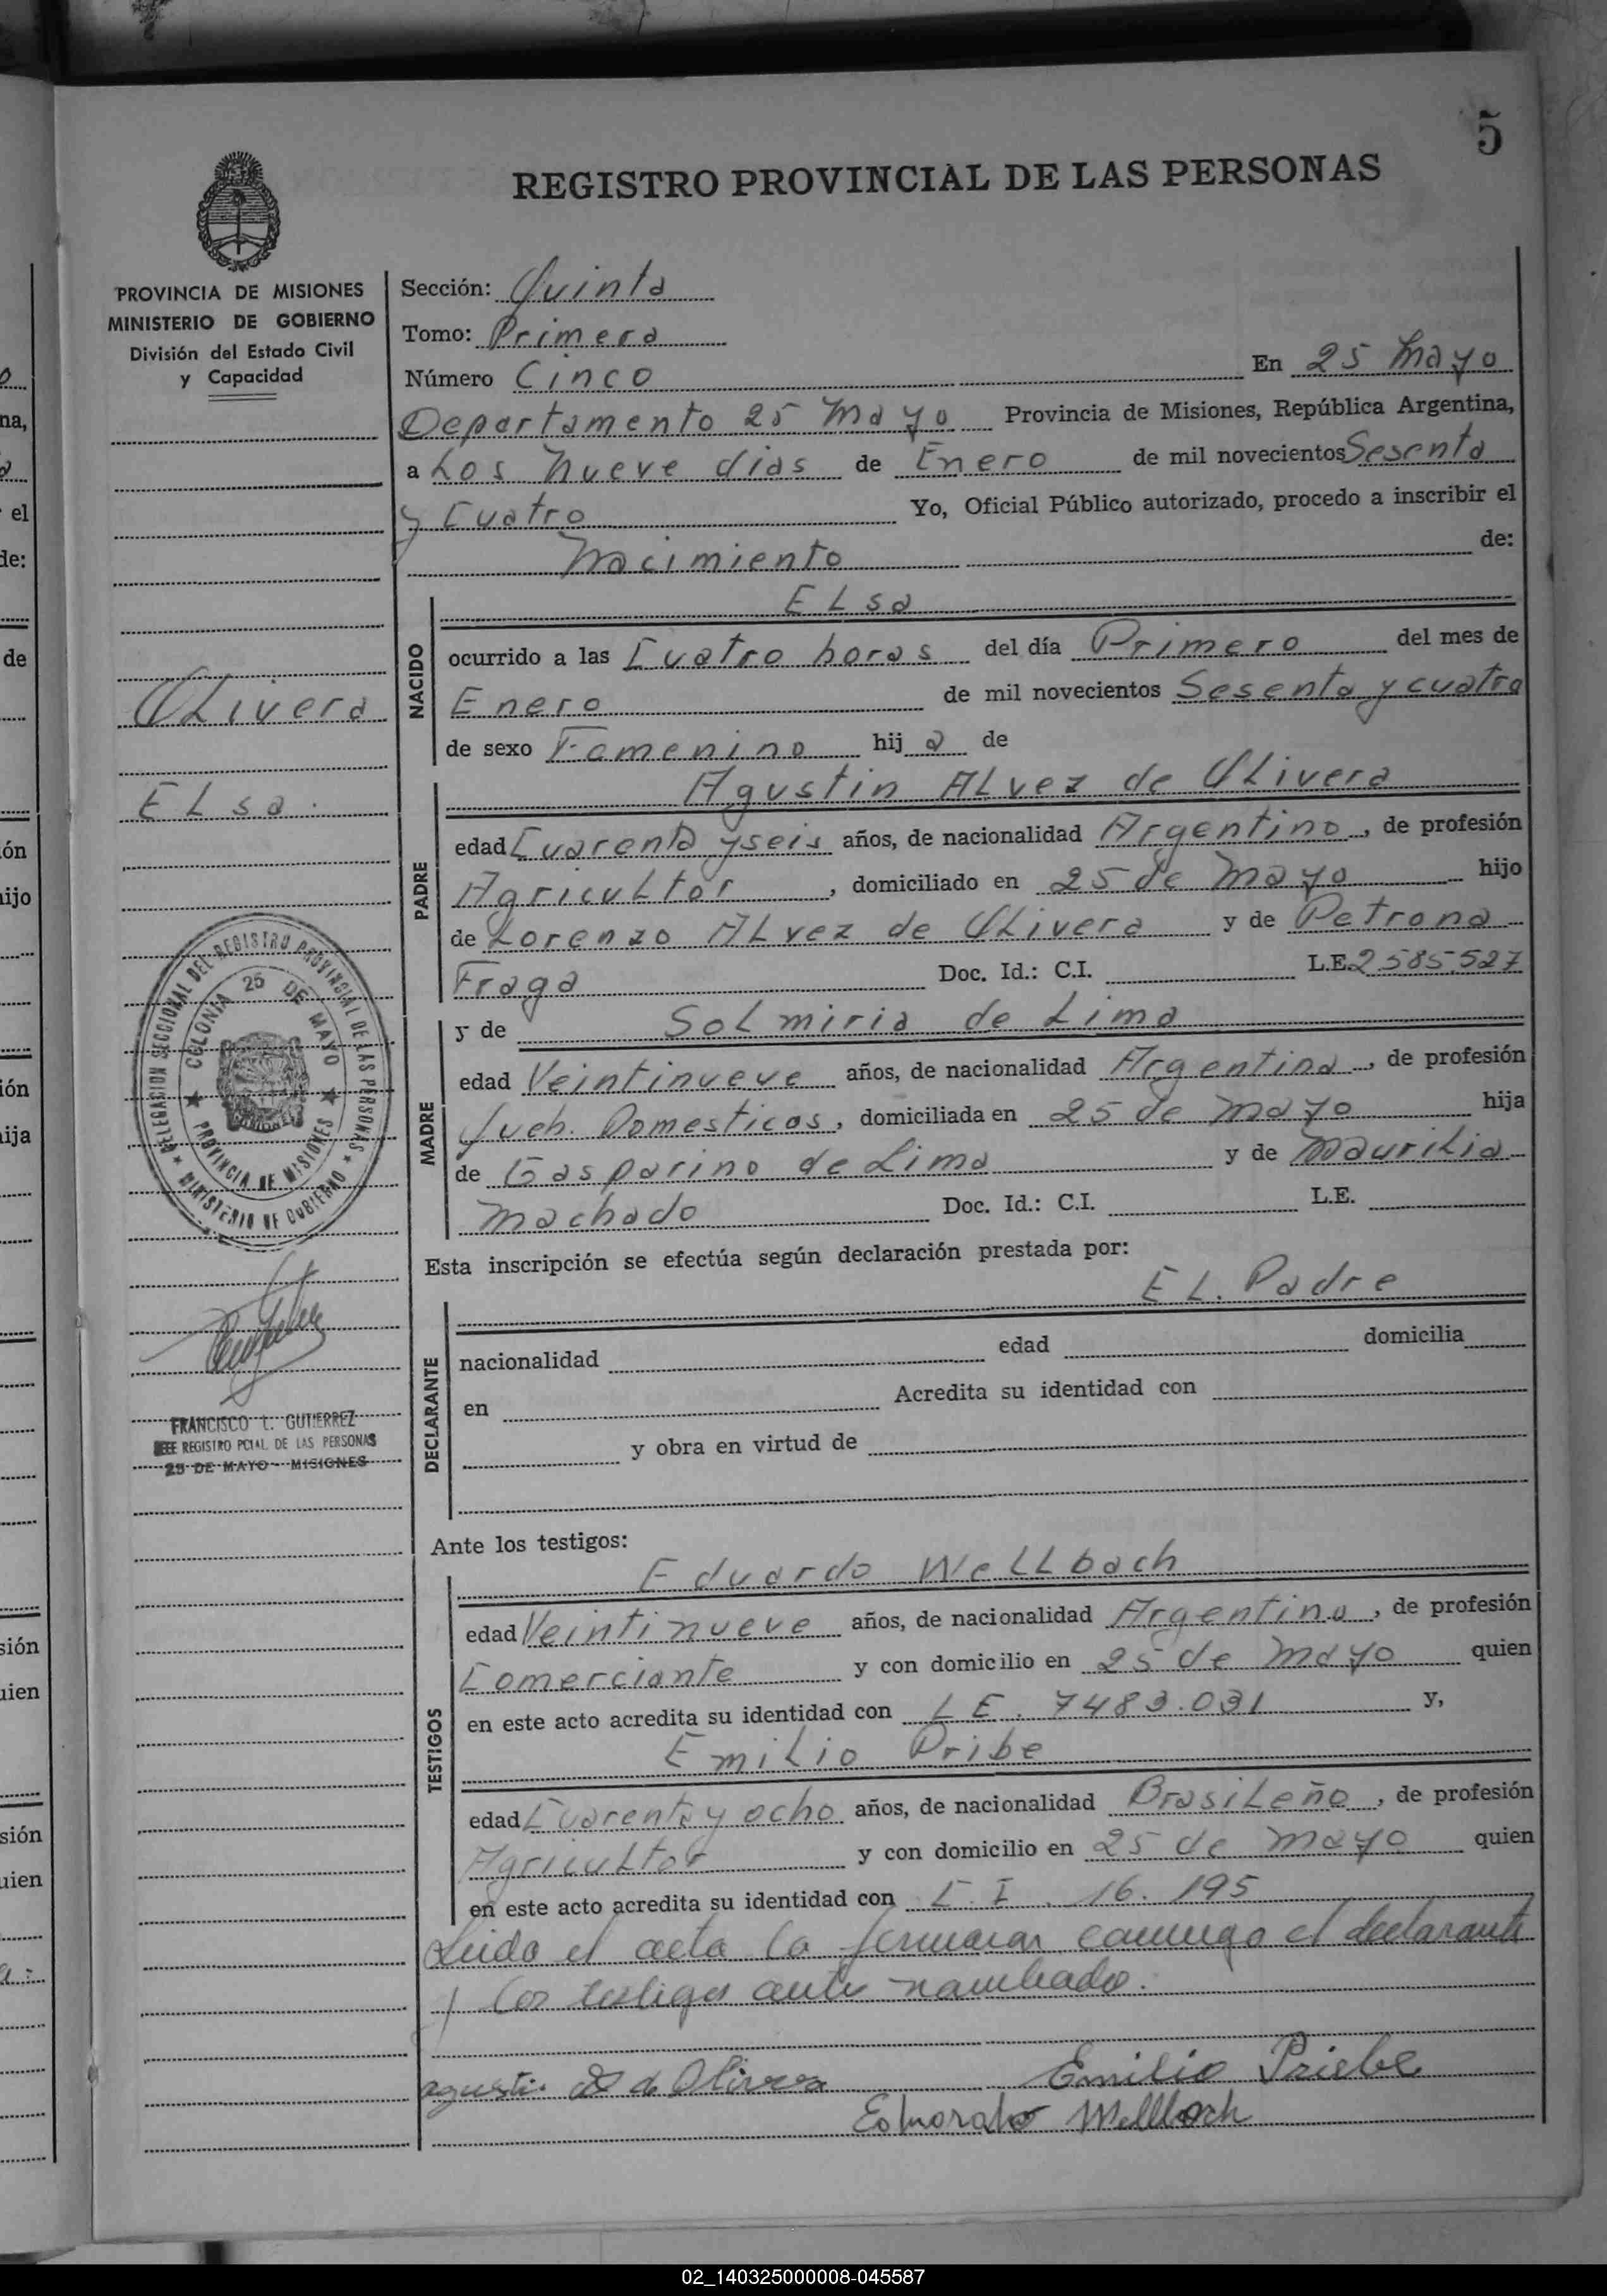 5
REGISTRO PROVINCIAL DE LAS PERSONAS
PROVINCIA DE MISIONES
MINISTERIO DE GOBIERNO
División del Estado Civil
y Capacidad
OLivera
ELsa.
DELEGACION SECCIONAL DEL REGISTRO PROVINCIAL DE LAS PERSONAS
★ MINISTERIO DE GOBIERNO ★
★ COLONIA 25 DE MAYO ★
PROVINCIA DE MISIONES
FRANCISCO L. GUTIERREZ
JEFE REGISTRO PCIAL. DE LAS PERSONAS
25 DE MAYO - MISIONES
Sección: Quinta
Tomo: Primera
Número Cinco En 25 Mayo
Departamento 25 Mayo Provincia de Misiones, República Argentina,
a Los Nueve dias de Enero de mil novecientos Sesenta
y Cuatro Yo, Oficial Público autorizado, procedo a inscribir el
Nacimiento de:
NACIDO
ELsa
ocurrido a las Cuatro horas del día Primero del mes de
Enero de mil novecientos Sesenta y cuatro
de sexo Femenino hij a de
PADRE
Agustin ALvez de OLivera
edad Cuarenta y seis años, de nacionalidad Argentino, de profesión
AgricuLtor, domiciliado en 25 de Mayo hijo
de Lorenzo ALvez de OLivera y de Petrona
Fraga Doc. Id.: C.I. L.E. 2585.527
MADRE
y de SoLmiria de Lima
edad Veintinueve años, de nacionalidad Argentina, de profesión
Queh. Domesticos, domiciliada en 25 de Mayo hija
de Gasparino de Lima y de MauriLia
Machado Doc. Id.: C.I. L.E.
Esta inscripción se efectúa según declaración prestada por:
DECLARANTE
EL. Padre
nacionalidad edad domicilia
en Acredita su identidad con
y obra en virtud de
Ante los testigos:
TESTIGOS
Eduardo WeLLbach
edad Veintinueve años, de nacionalidad Argentino, de profesión
Comerciante y con domicilio en 25 de Mayo quien
en este acto acredita su identidad con L E. 7483.031 y,
EmiLio Pribe
edad Cuarenta y ocho años, de nacionalidad BrasiLeño, de profesión
AgricuLtor y con domicilio en 25 de Mayo quien
en este acto acredita su identidad con C. I. 16.195
Leida el acta la firmaran conmigo el declarante
y los testigos ante nombrado.
agusti. de Olivera Emilio Priebe
Eduardo Wellbach
02_140325000008-045587